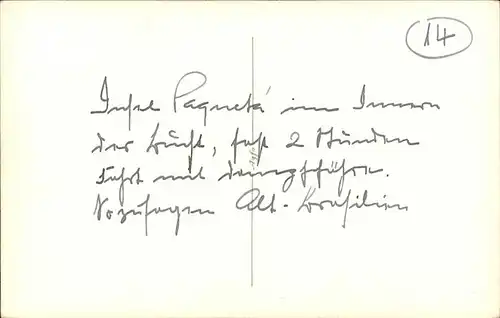 14
Insel Paquetá im Innern
der Bucht, fast 2 Stunden
Fahrt mit Dampffähre.
Sozusagen Alt-Brasilien